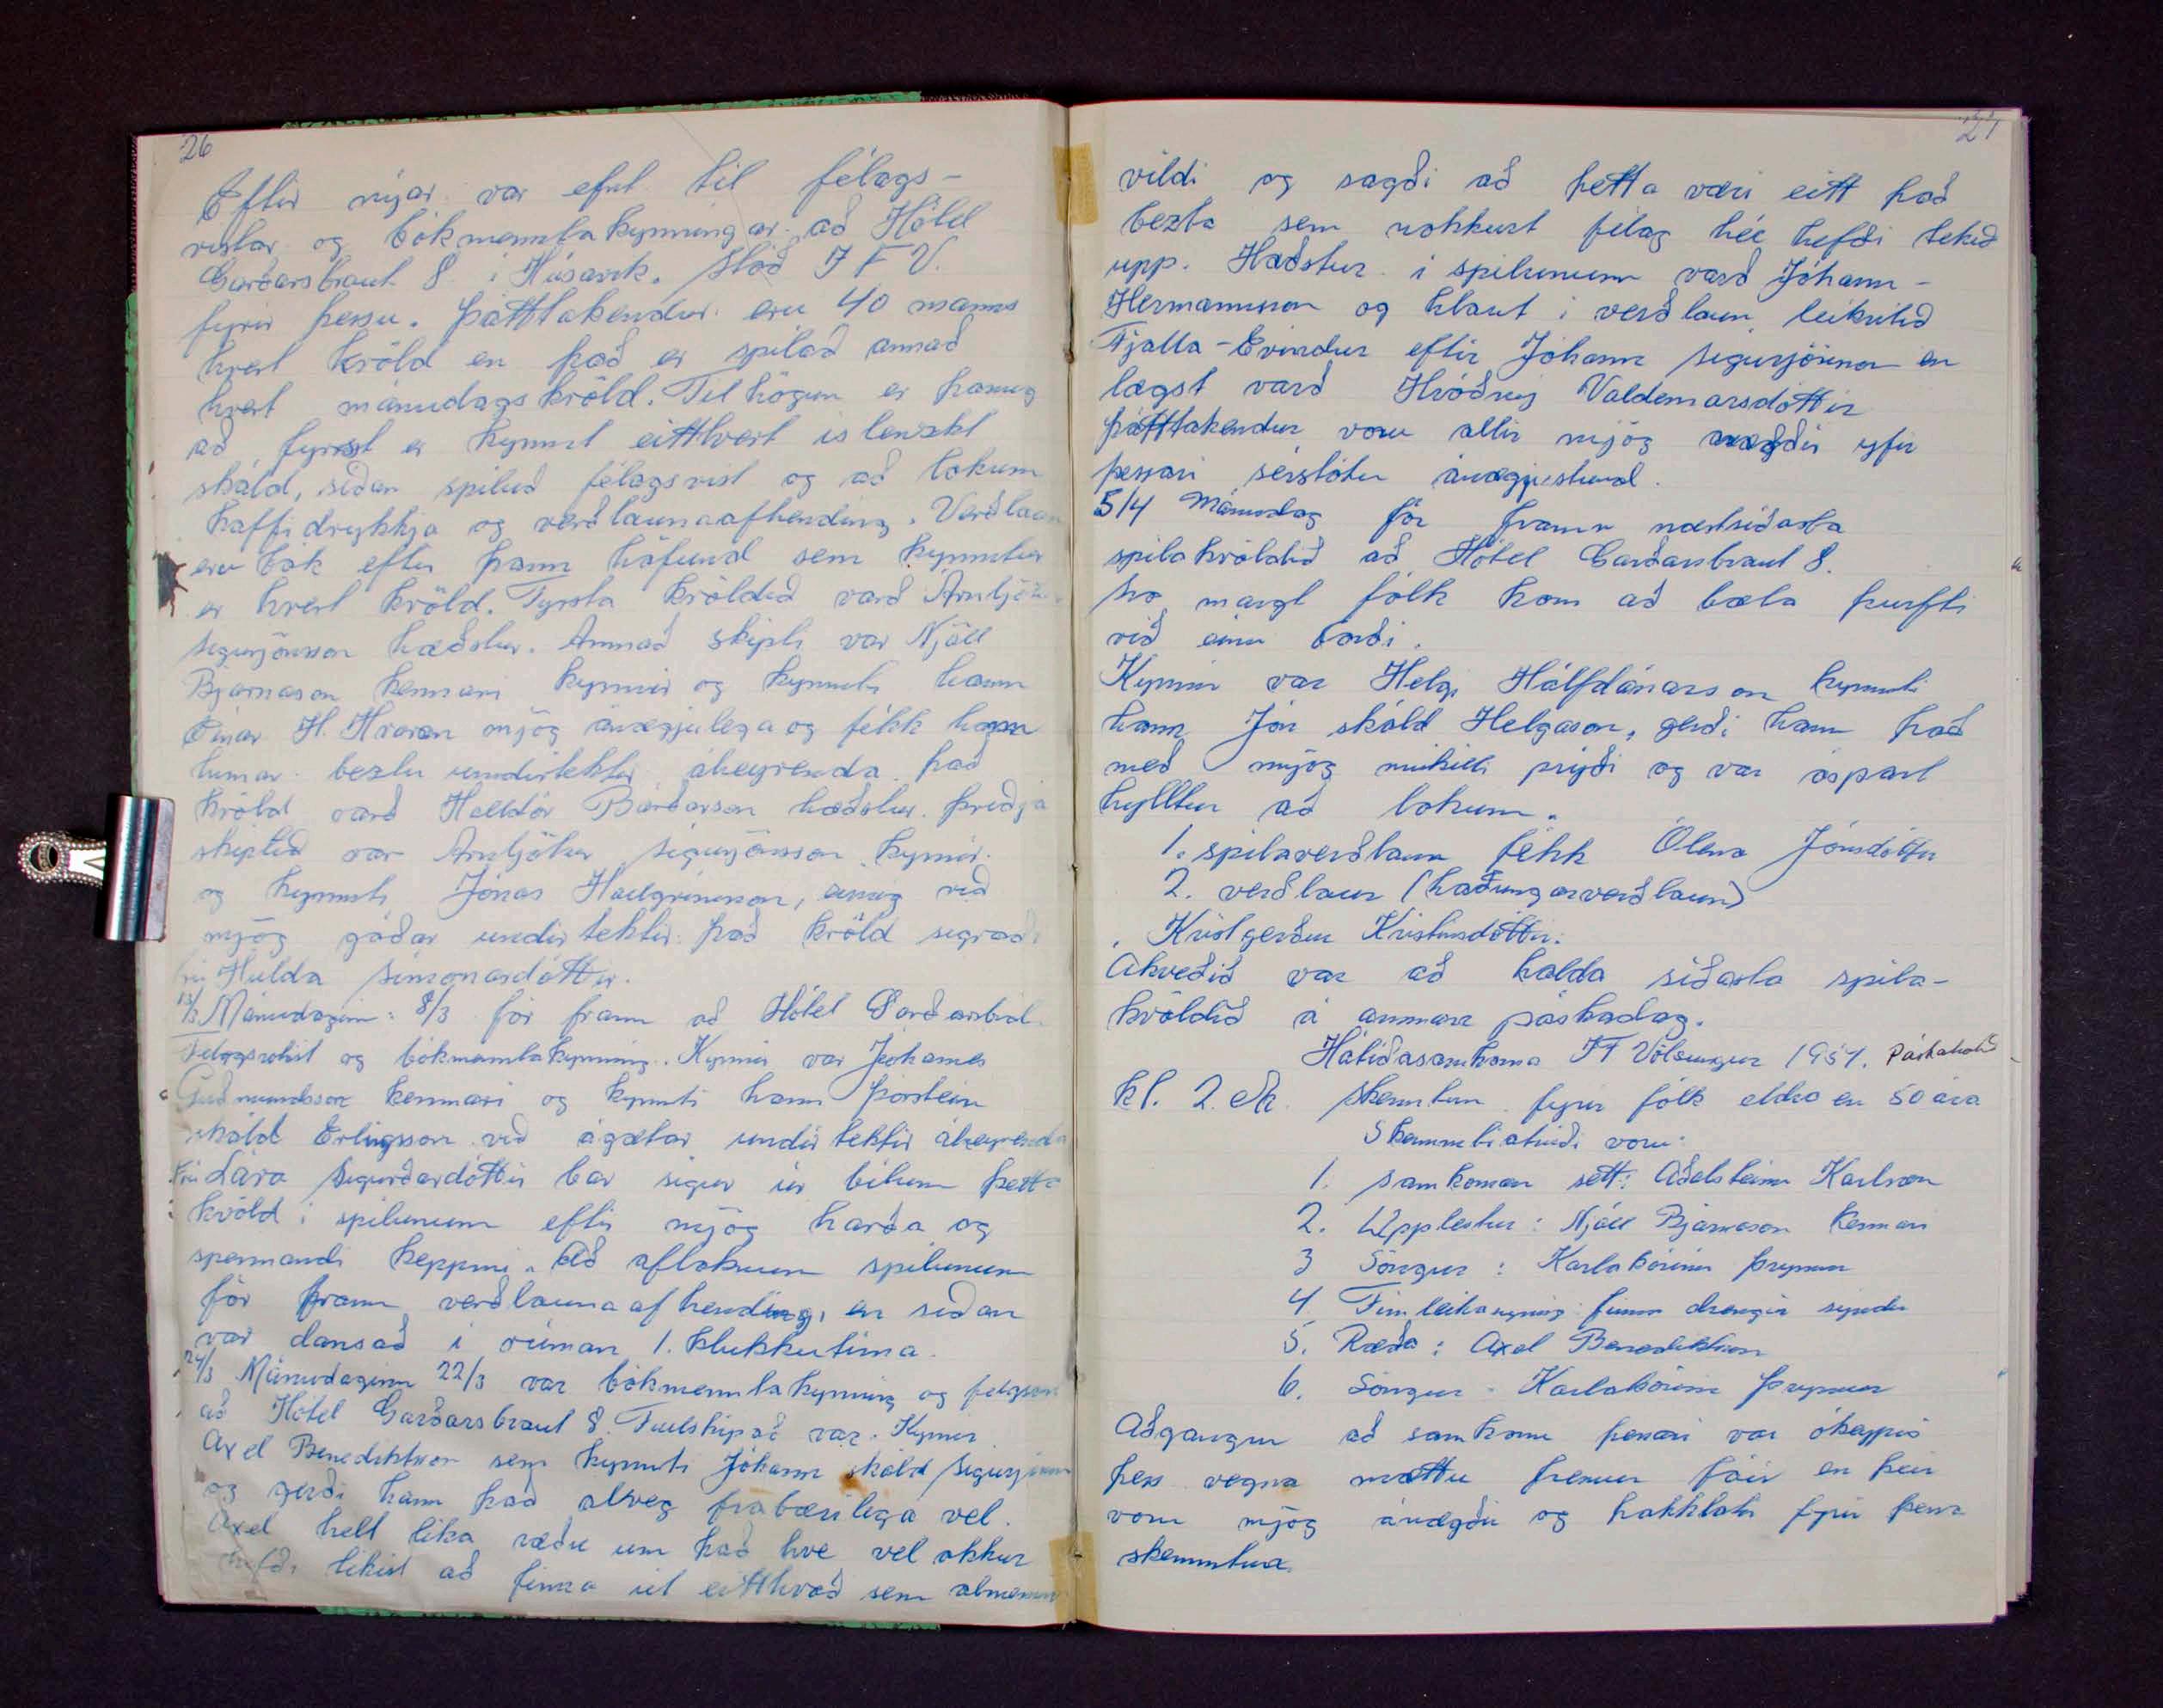 26
Eftir nýar var efnt til félags-
vistar og bókmenntakynningar að Hótel
Garðarsbraut 8 í Húsavík. Stóð I F V.
fyrir þessu. Þátttakendur eru 40 manns
hvert kvöld en það er spilað annað
hvert mánudagskvöld. Tilhögun er þannig
að fyrst er kynnt eitthvert íslenzkt
skáld, síðan spiluð félagsvist og að lokum
kaffidrykkja og verðlaunaafhending. Verðlaun
eru bók eftir þann höfund sem kynntur
er hvert kvöld. Fyrsta kvöldið varð Arnljótur
Sigurjónsson hæðstur. Annað skipti var Njáll
Bjarnason kennari kynnir og kynnti hann
Einar H. Kvaran mjög ánægjulega og fékk hann
hinar beztu undirtektir áheyrenda. Það
kvöld varð Halldór Bárðarson hæðstur. Þriðja
skiptið var Arnljótur Sigurjónsson kynnir
og kynnti Jónas Hallgrímsson, einnig við
mjög góðar undirtektir. Það kvöld sigraði
frú Hulda Símonardóttir.
13/3 Mánudaginn: 8/3 fór fram að Hótel Garðarsbr.
Félagsvist og bókmenntakynning. Kynnir var Jóhannes
Guðmundsson kennari og kynnti hann Þorstein
skáld Erlingsson við ágætar undirtektir áheyrenda
frú Lára Sigurðardóttir bar sigur úr bítum þetta
kvöld í spilunum eftir mjög harða og
spennandi keppni. Að afloknum spilunum
fór fram verðlaunaafhending, en síðan
var dansað í rúman 1. klukkutíma.
24/3 Mánudaginn 22/3 var bókmenntakynning og félagsvist
að Hótel Garðarsbraut 8. Fullskipað var. Kynnir
Axel Benediktsson sem kynnti Jóhann skáld Sigurjónsson
og gerði hann það alveg frábærilega vel.
Axel helt líka ræðu um það hve vel okkur
hefði tekist að finna út eitthvað sem almenningur
27
vildi og sagði að þetta væri eitt það
bezta sem nokkurt félag hér hefði tekið
upp. Hæðstur í spilunum varð Jóhann
Hermannsson og hlaut í verðlaun leikritið
Fjalla-Eyvindur eftir Jóhann Sigurjónsson en
lægst varð Hróðný Valdemarsdóttir
þátttakendur voru allir mjög ánægðir yfir
þessari sérstöku ánægjustund.
5/4 Mánudag fór fram næstsíðasta
spilakvöldið að Hótel Garðarsbraut 8.
Svo margt fólk kom að bæta þurfti
við einu borði.
Kynnir var Helgi Hálfdánarson kynnti
hann Jón skáld Helgason, gerði hann það
með mjög mikilli prýði og var óspart
hylltur að lokum.
1. spilaverðlaun fékk Ólena Jónsdóttir
2. verðlaun (háðungarverðlaun)
Kristgerður Kristinsdóttir.
Ákveðið var að halda síðasta spila-
kvöldið á annan páskadag.
Hátíðasamkoma IF Völsungur 1954. Páskahátíð
kl. 2. eh. Skemmtun fyrir fólk eldra en 50 ára
Skemmtiatriði voru:
1. Samkoman sett: Aðalsteinn Karlsson
2. Upplestur: Njáll Bjarnason kennari
3 Söngur: Karlakórinn Þrymur
4. Fimleikasýning: fimm drengir sýndu
5. Ræða: Axel Benediktsson
6. Söngur Karlakórinn Þrymur
Aðgangur að samkomu þessari var ókeypis
þess vegna mættu fremur fáir en þeir
voru mjög ánægðir og þakklátir fyrir þessa
skemmtun.